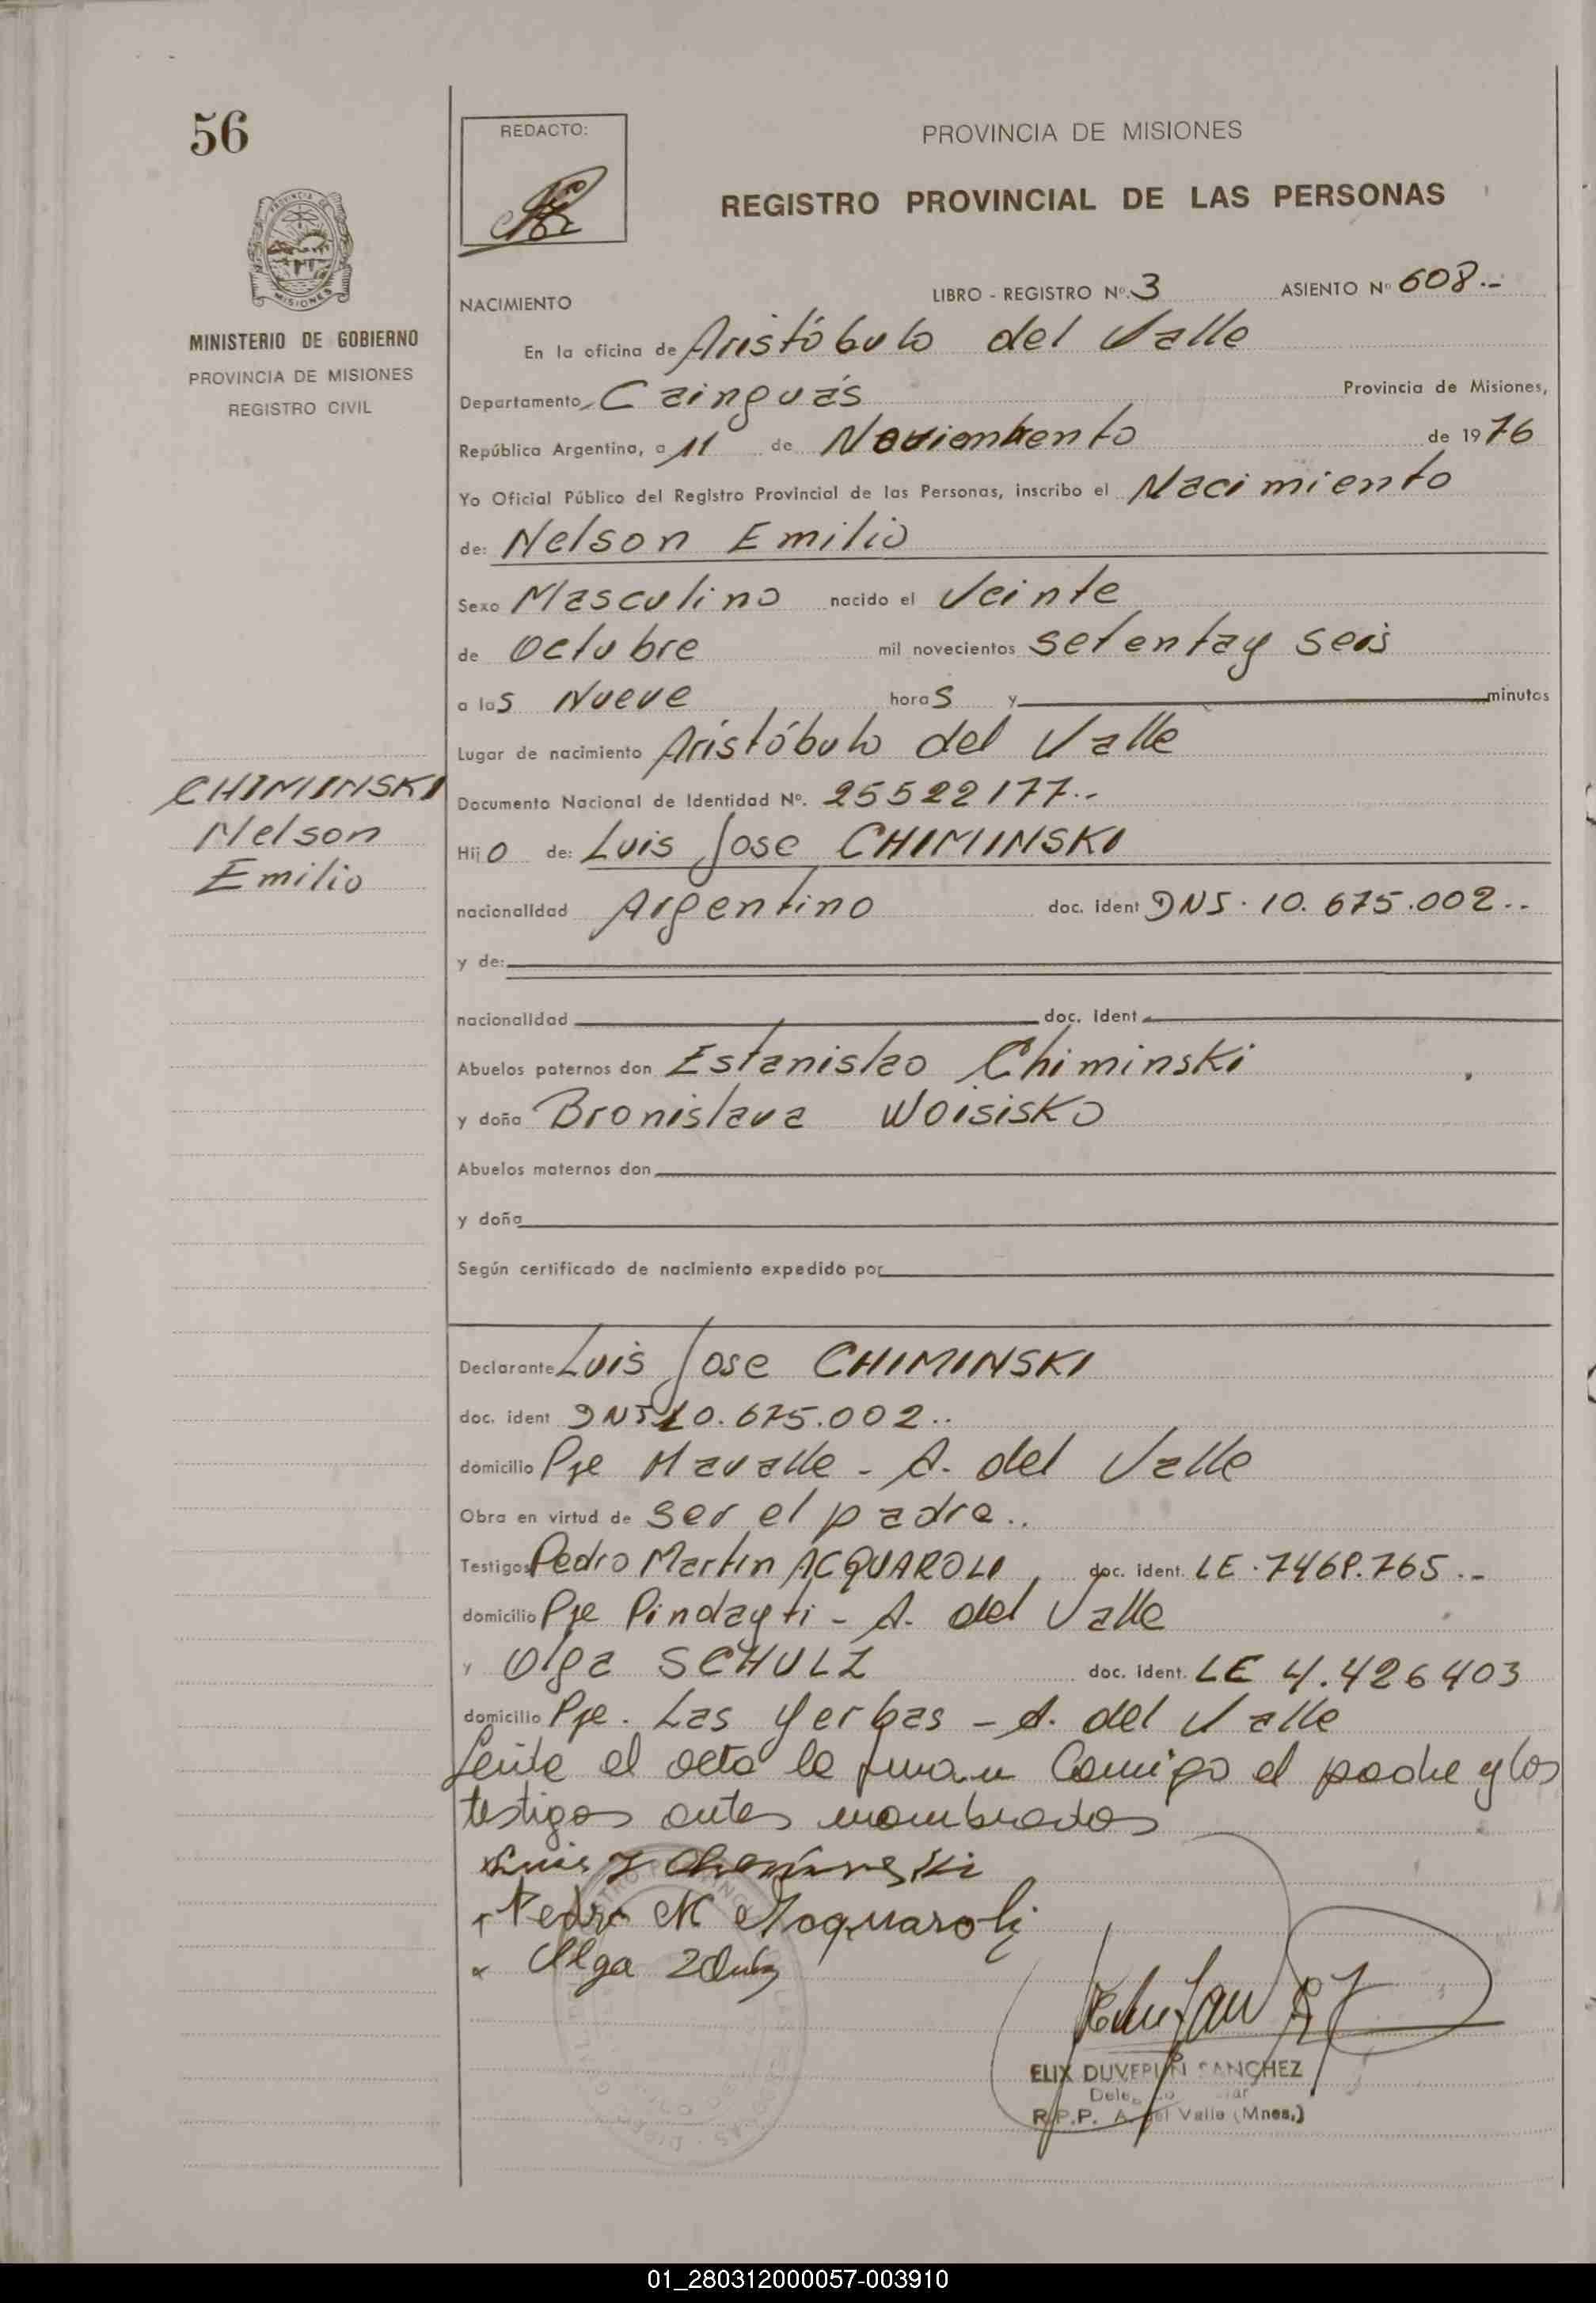 56
REDACTO:
PROVINCIA DE MISIONES
REGISTRO PROVINCIAL DE LAS PERSONAS
MISIONES
MINISTERIO DE GOBIERNO
PROVINCIA DE MISIONES
REGISTRO CIVIL
NACIMIENTO LIBRO - REGISTRO Nº. 3 ASIENTO Nº 608.-
En la oficina de Aristóbulo del Valle
Departamento, Cainguás Provincia de Misiones,
República Argentina, a 11 de de 1976
Yo Oficial Público del Registro Provincial de las Personas, inscribo el Nacimiento
de: Nelson Emilio
Sexo Masculino nacido el Veinte
de Octubre mil novecientos setentay seis
a las Nueve horas y minutos
Lugar de nacimiento Aristóbulo del Valle
CHIMINSKI
Nelson
Emilio
Documento Nacional de Identidad Nº. 25522177.-
Hijo de: Luis Jose CHIMINSKI
nacionalidad Argentino doc. ident DNI. 10.675.002..
y de:
nacionalidad doc. ident
Abuelos paternos don Estanislao Chiminski
y doña Bronislava Woisisko
Abuelos maternos don
y doña
Según certificado de nacimiento expedido por
Declarante Luis Jose CHIMINSKI
doc. ident DNI 10.675.002..
domicilio Pje Mavalle - A. del Valle
Obra en virtud de ser el padre..
Testigos Pedro Martin ACQUAROLI, doc. ident. LE.7468.765.-
domicilio Pje Pindayti - A. del Valle
y Olga SCHULZ doc. ident. LE 4.426403
domicilio Pje. Las Yerbas - A. del Valle
el acta la firman Comigo el padre y los
testigos antes nombrados
Luis J Chiminski
Pedro M Acquaroli
Olga
ELIX SANCHEZ
R.P.P. A. del Valle (Mnes.)
01_280312000057-003910